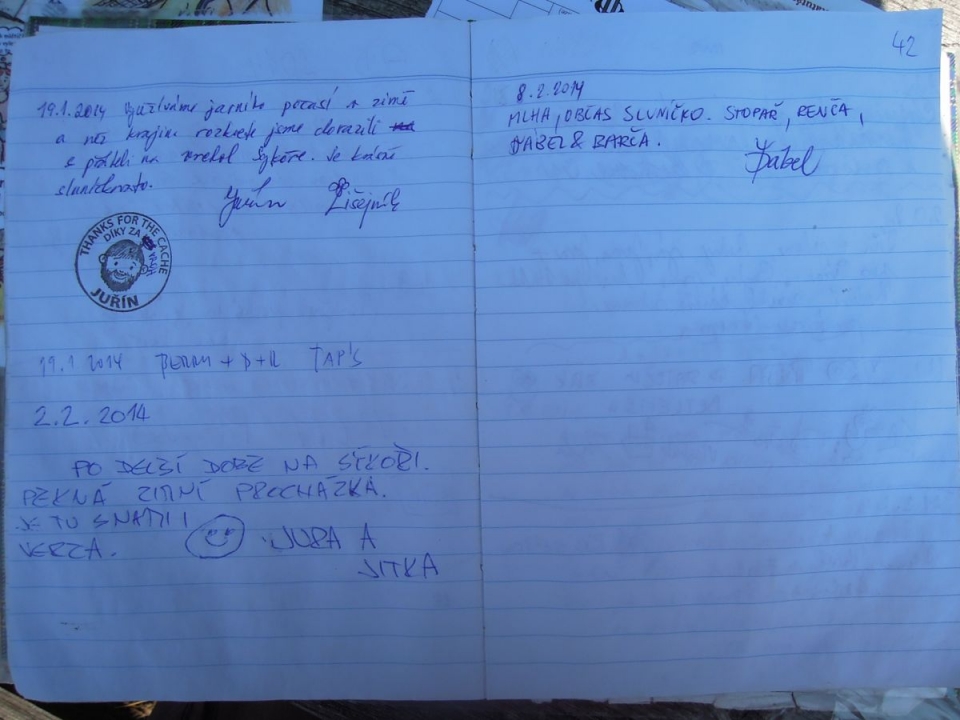 19.1.2014 Užíváme jarního počasí v zimě
a než krajina rozkvete jsme dorazili
s přáteli na vrchol Sýkoře. Je krásně
slunečno.
THANKS FOR THE CACHE
DÍKY ZA
JUŘÍN
19.1 2014 + D+R TAP'S
2.2.2014
PO DELŠÍ DOBĚ NA SÝKOŘI.
PĚKNÁ ZIMNÍ PROCHÁZKA.
JE TU S NÁMI I
VERČA. JURA A
JITKA
42
8.2.2014
MLHA, OBČAS SLUNÍČKO. STOPAŘ, RENČA,
ĎÁBEL & BARČA.
Ďábel